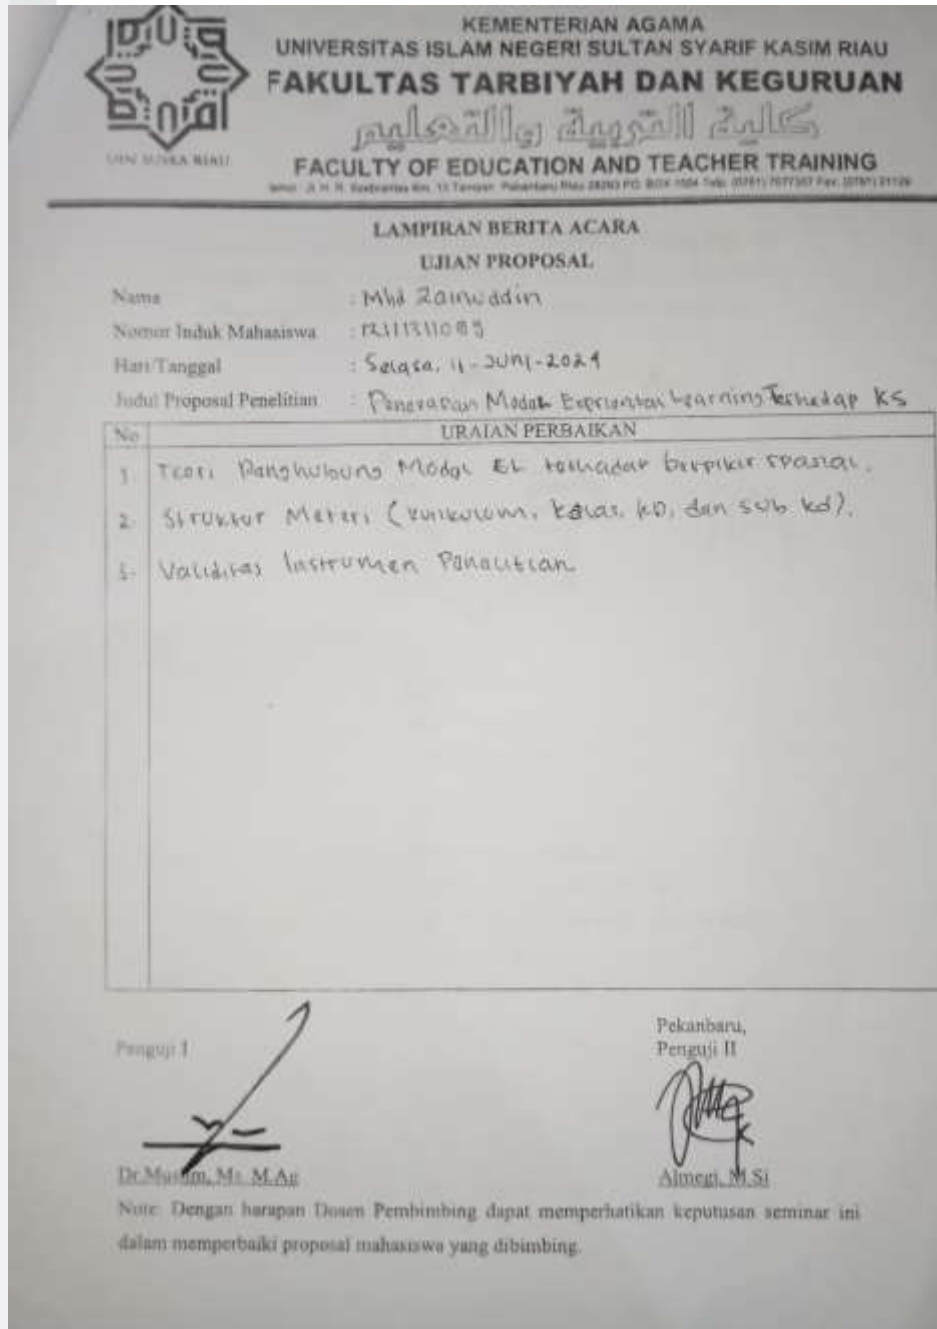 KEMENTERIAN AGAMA
UNIVERSITAS ISLAM NEGERI SULTAN SYARIF KASIM RIAU
FAKULTAS TARBIYAH DAN KEGURUAN
كلية التربية والتعليم
UIN SUSKA RIAU
FACULTY OF EDUCATION AND TEACHER TRAINING
LAMPIRAN BERITA ACARA
UJIAN PROPOSAL
Nama : Mhd Zainuddin
Nomor Induk Mahasiswa :
Hari/Tanggal : Selasa, 11-JUNI-2024
Judul Proposal Penelitian : Penerapan Model Learning Terhadap KS
No URAIAN PERBAIKAN
1. Teori Penghubung Model EL terhadap berpikir spasial.
2. Struktur Materi (kurikulum, kelas, KD, dan sub kd).
3. Validitas Instrumen Penelitian
Pekanbaru,
Penguji I Penguji II
Almegi, M.Si
Note: Dengan harapan Dosen Pembimbing dapat memperhatikan keputusan seminar ini
dalam memperbaiki proposal mahasiswa yang dibimbing.